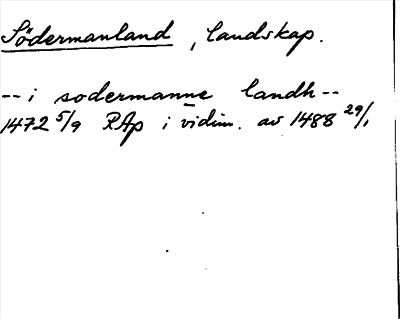 Södermanland, landskap.
-- i sodermanne landh --
1472 5/9 RAp i vidim. av 1488 29/1